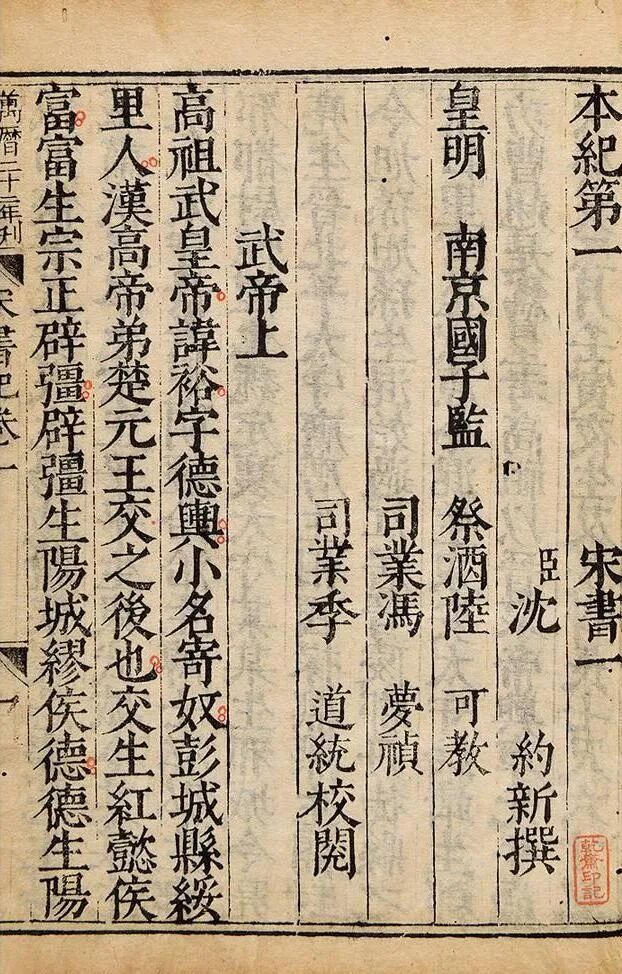 本紀第一 宋書一
臣沈 約新撰
皇明 南京國子監 祭酒陸 可教
司業馮 夢禎
司業季 道統校閱
武帝上
高祖武皇帝諱裕字德輿小名寄奴彭城縣綏
里人漢高帝弟楚元王交之後也交生紅懿侯
富富生宗正辟彊辟彊生陽城繆侯德德生陽
萬曆二十二年刊 宋書紀卷一 一
乾齋印記